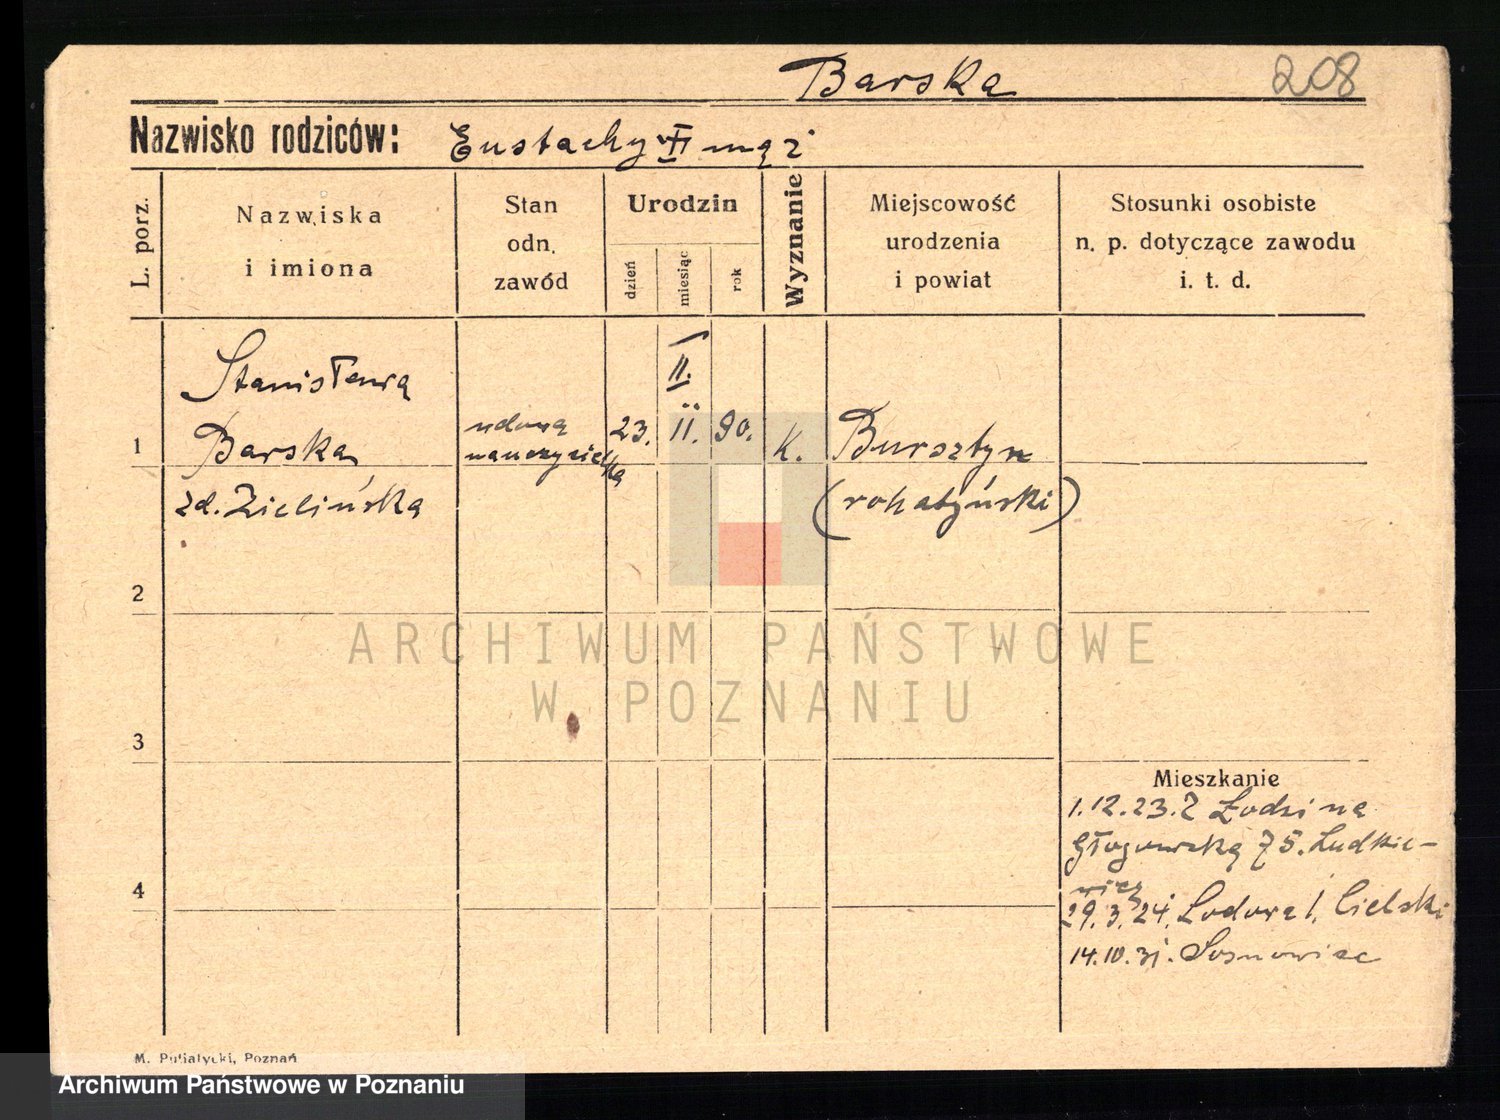 Barska
208
Nazwisko rodziców: Eustachy VI mąż
L. porz.
Nazwiska
i imiona
Stan
odn.
zawód
Urodzin
dzień
miesiąc
rok
Wyznanie
Miejscowość
urodzenia
i powiat
Stosunki osobiste
n. p. dotyczące zawodu
i. t. d.
II.
Stanisława
1 Barska wdowa 23. II. 90. K. Bursztyn
nauczycielka
zd. Zielińska (rohatyński)
2
3
Mieszkanie
1.12.23. Z Łodzi na
Głogowską 75. Ludkie-
4 wicz
29.3.24. Lodowa 1. Cielski
14.10.31. Sosnowiec
ARCHIWUM PAŃSTWOWE
W POZNANIU
M. Putiatycki, Poznań
Archiwum Państwowe w Poznaniu